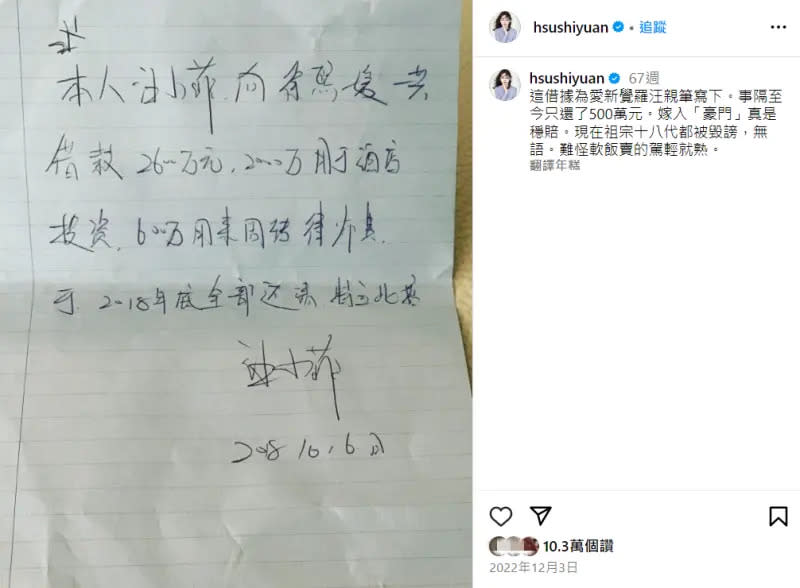 本人汪小菲向徐熙媛共
借款 2600万元，2000万用于酒店
投资，600万用来周转
于 2018年底全部还清 特立此
汪小菲
2018 10.6日
hsushiyuan • 追蹤
hsushiyuan 67週
這借據為愛新覺羅汪親筆寫下。事隔至
今只還了500萬元。嫁入「豪門」真是
穩賠。現在祖宗十八代都被毀謗，無
語。難怪軟飯賣的駕輕就熟。
翻譯年糕
10.3萬個讚
2022年12月3日